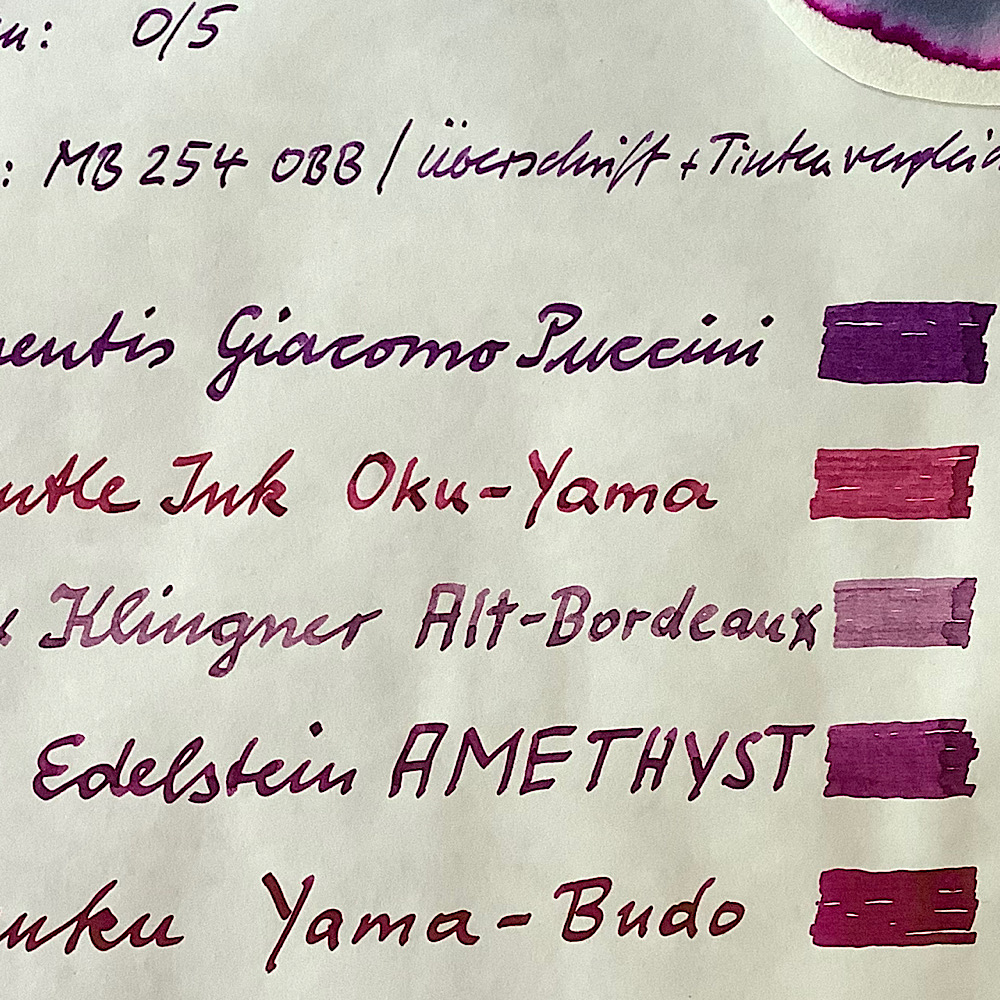 en: 0/5
: MB 254 OBB / Überschrift + Tintenvergleic
mentis Giacomo Puccini
utle Ink Oku-Yama
x Klingner Alt-Bordeaux
Edelstein AMETHYST
zuku Yama-Budo